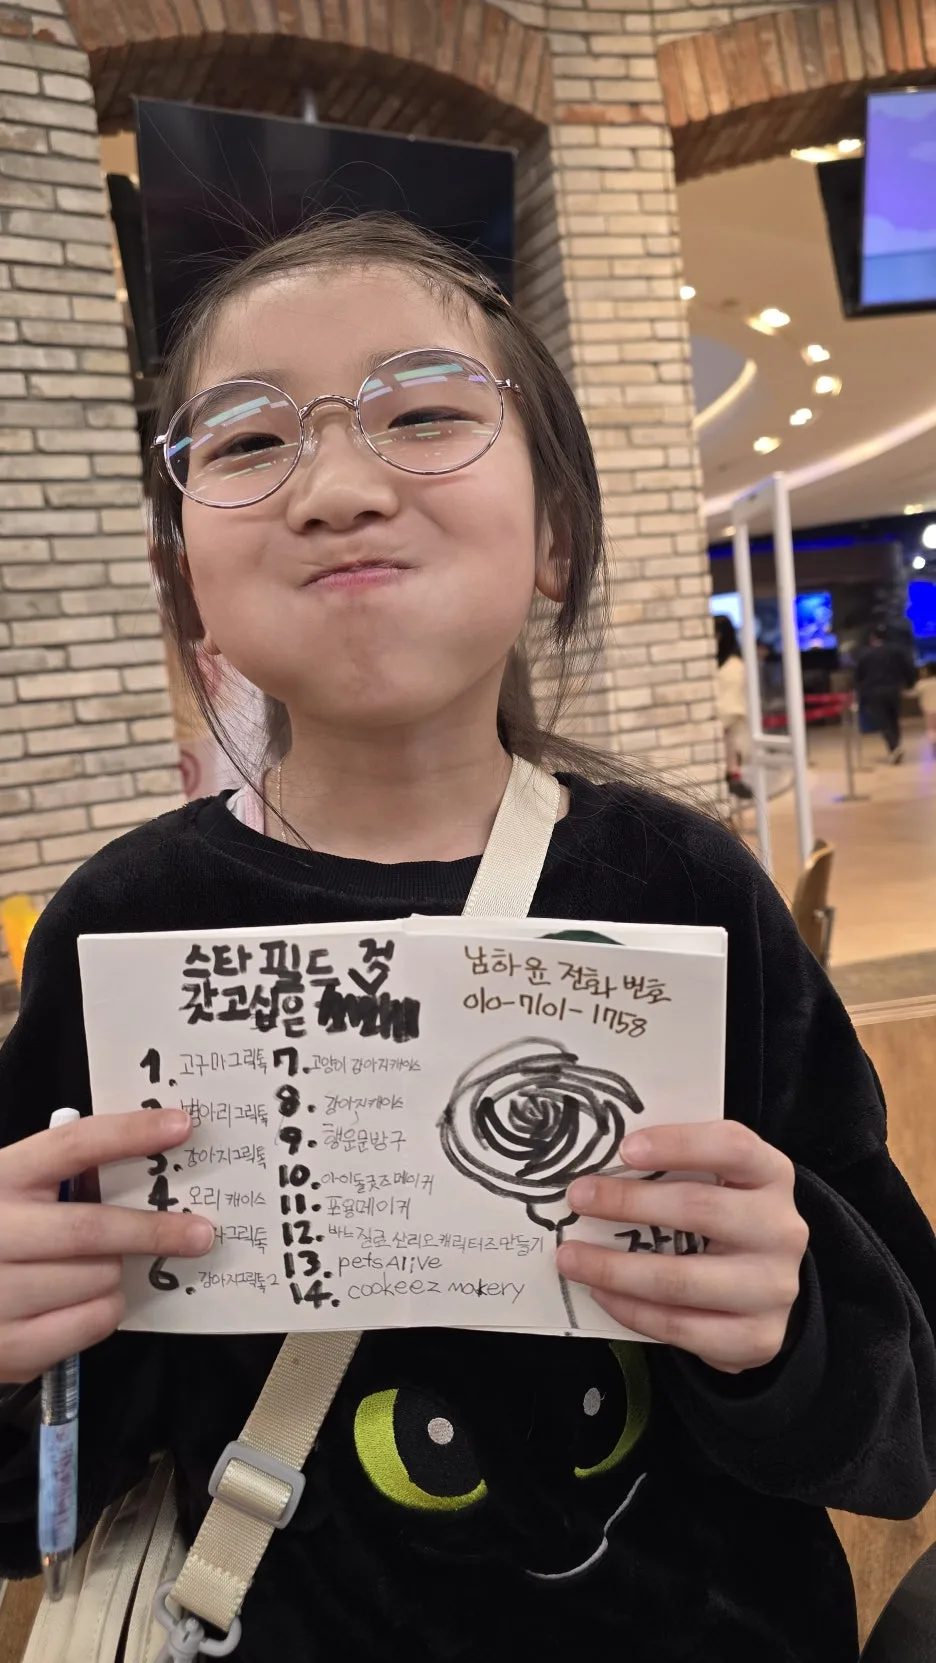 스타필드 것
갖고싶은
1. 고구마그릭톡
병아리그릭톡
3. 강아지그릭톡
4. 오리케이스
그릭톡
6. 강아지그릭톡2
7. 고양이 강아지케이스
8. 강아지케이스
9. 행운문방구
10. 아이돌굿즈메이커
11. 포용메이커
12. 바느질로 산리오캐릭터즈만들기
13. petsAlive
14. cookeez makery
남하윤 전화 번호
010-7101-1758